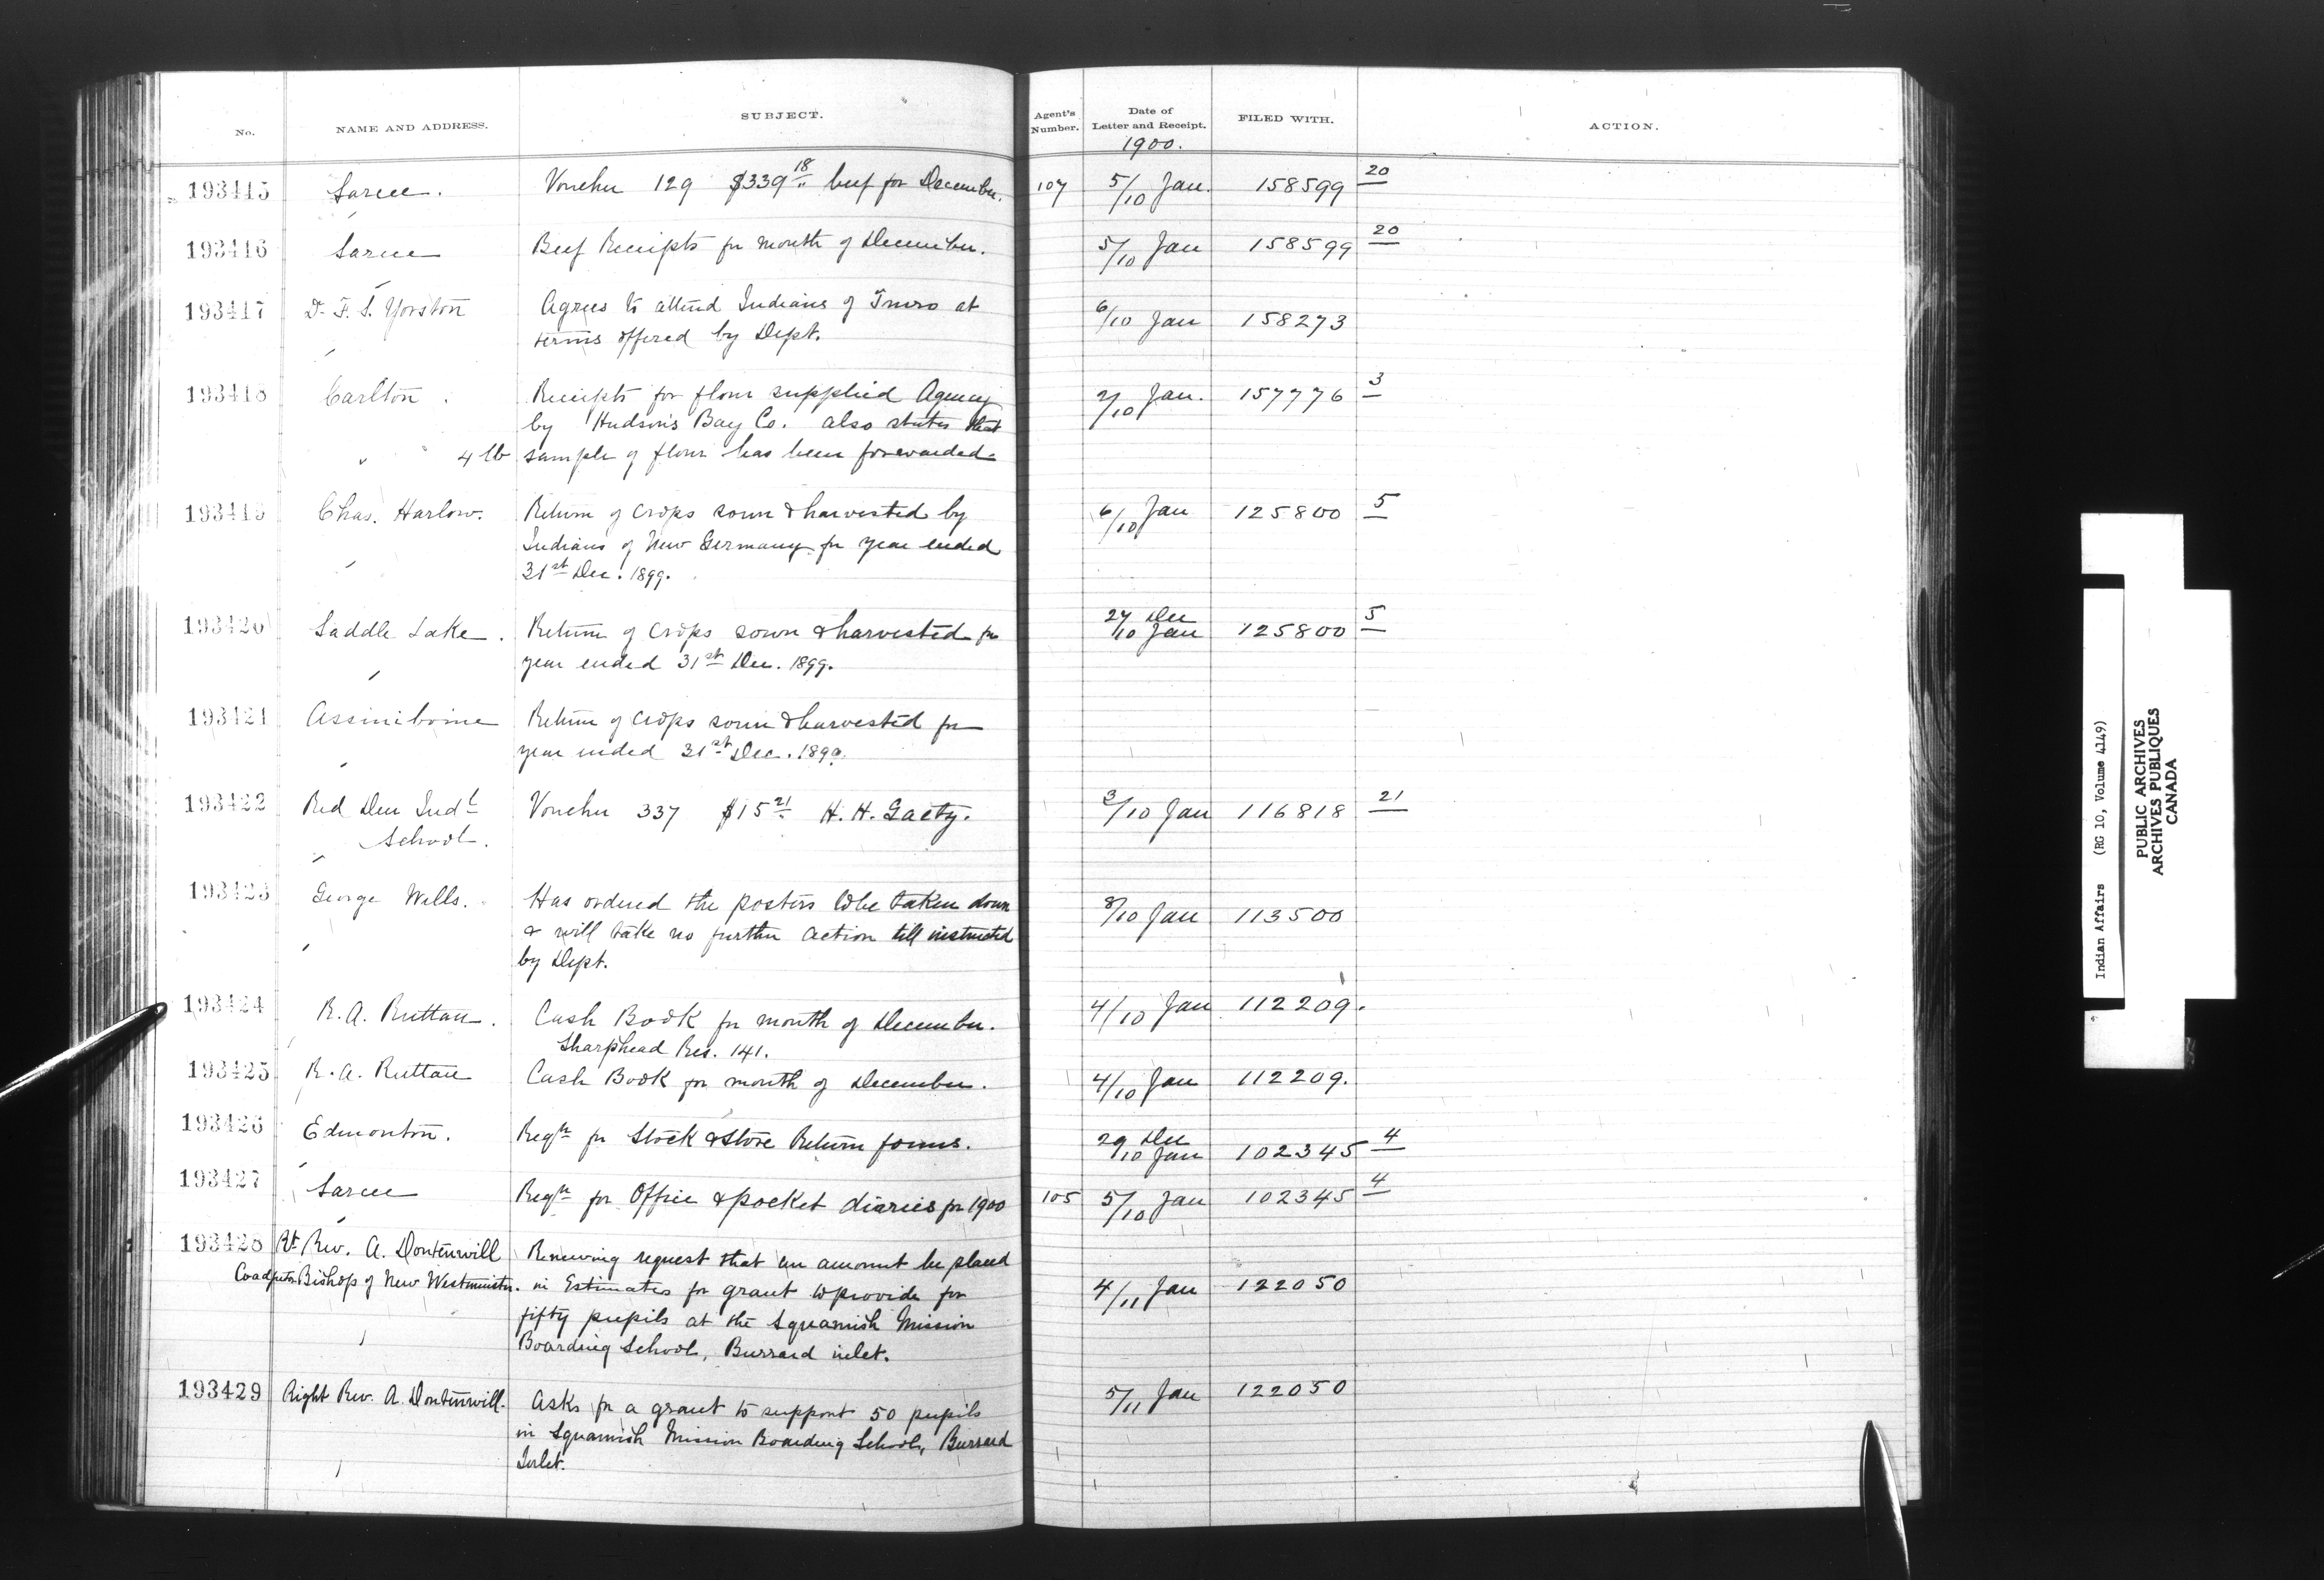 No. NAME AND ADDRESS. SUBJECT. Agent's Number. Date of Letter and Receipt. FILED WITH. ACTION.
1900.
193415 Sarcee. Voucher 129 $339 18 beef for December. 107 5/10 Jan. 158599 20
193416 Sarcee Beef Receipts for month of December. 5/10 Jan 158599 20
193417 Dr F. S. Yorston Agrees to attend Indians of Truro at 6/10 Jan 158273
terms offered by Dept.
193418 Carlton. Receipts for flour supplied Agency 2/10 Jan. 157776 3
by Hudson's Bay Co. also states that
4 lb sample of flour has been forwarded
193419 Chas. Harlow. Return of crops sown & harvested by 6/10 Jan 125800 5
Indians of New Germany for year ended
31st Dec. 1899.
193420 Saddle Lake. Return of crops sown & harvested for 27 Dec 10 Jan 125800 5
year ended 31st Dec. 1899.
193421 Assiniboine Return of crops sown & harvested for
year ended 31st Dec. 1899.
193422 Red Deer Indl Voucher 337 $15 21 H. H. Gaety. 3/10 Jan 116818 21
School.
193423 George Wells. Has ordered the posters to be taken down 8/10 Jan 113500
& will take no further action till instructed
by Dept.
193424 R. A. Ruttan. Cash Book for month of December. 4/10 Jan 112209.
Sharphead Res. 141.
193425 R. A. Ruttan Cash Book for month of December. 4/10 Jan 112209.
193426 Edmonton. Reqn for Stock & Store Return forms. 29 Dec 10 Jan 102345 4
193427 Sarcee Reqn for Office & pocket diaries for 1900 105 5/10 Jan 102345 4
193428 Rt. Rev. A. Dontenwill Renewing request that an amount be placed
Coadjutor Bishop of New Westminster. in Estimates for grant to provide for 4/11 Jan 122050
fifty pupils at the Squamish Mission
Boarding School, Burrard inlet.
193429 Right Rev. A. Dontenwill. Asks for a grant to support 50 pupils 5/11 Jan 122050
in Squamish Mission Boarding School, Burrard
Inlet.
Indian Affairs (RG 10, Volume 4149)
PUBLIC ARCHIVES
ARCHIVES PUBLIQUES
CANADA